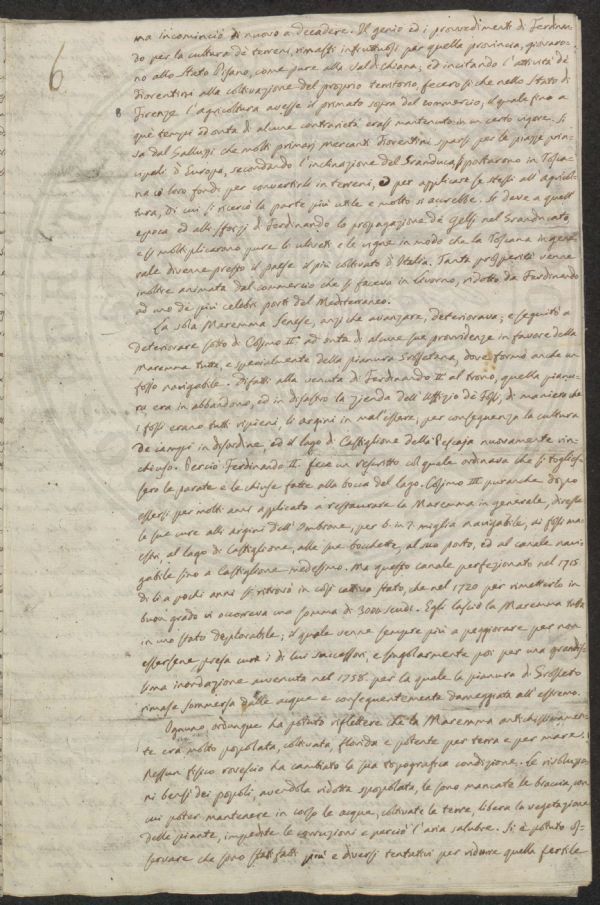 6
ma incominciò di nuovo a decadere. Il genio ed i provvedimenti di Ferdinan-
do per la cultura de terreni, rimasti infruttuosi per quella provincia, giovaro-
no allo Stato Pisano, come pure alla Val di Chiana; ed incitando l'attività de
Fiorentini alla coltivazione del proprio territorio, fece sì che nello Stato di
Firenze l'agricoltura avesse il primato sopra del commercio, il quale fino a
que tempi ad onta di alcune contrarietà erasi mantenuto in un certo vigore. Si
sa dal Galluzzi che molti primarj mercanti Fiorentini sparsi per le piazze prin-
cipali di Europa, secondando l'inclinazione del Granduca trasportarono in Tosca-
na i loro fondi per convertirli in terreni, e per applicare se stessi all'agricol-
tura, di cui si ricercò la parte più utile e molto si accrebbe. Si deve a quest'
epoca ed alli sforzi di Ferdinando la propagazione de Gelsi nel Granducato,
e si moltiplicarono pure le uliveti e le vigne in modo che la Toscana in gene-
rale divenne presto il paese il più coltivato di Italia. Tanta prosperità venne
inoltre animata dal commercio che si faceva in Livorno, ridotto da Ferdinando
ad uno de più celebri porti del Mediterraneo.
La sola Maremma Senese, anzi che avanzare, deteriorava; e seguitò a
deteriorare sotto di Cosimo II. ad onta di alcune sue providenze in favore della
Maremma tutta, e specialmente della pianura Grossetana, dove formò anche un
fosso navigabile. Difatti alla venuta di Ferdinando II al trono, quella pianu-
ra era in abbandono, ed in disastro la Azienda dell'Uffizio de Fossi, di maniera che
i fossi erano tutti ripieni, li argini in mal'essere, per conseguenza la cultura
de campi in disordine, ed il lago di Castiglione della Pescaja nuovamente rin-
chiuso. Perciò Ferdinando II. fece un rescritto col quale ordinava che si toglies-
sero le parate e le chiuse fatte alla bocca del lago. Cosimo III. puranche dopo
essersi per molti anni applicato a restaurare la Maremma in generale, diresse
le sue cure alli argini dell'Ombrone, per 6. in 7. miglia navigabile, ai fossi mae-
stri, al lago di Castiglione, alle sue bocchette, al suo porto, ed al canale navi-
gabile fino a Castiglione medesimo. Ma questo canale perfezionato nel 1715
di lì a pochi anni si ritrovò in così cattivo stato, che nel 1720 per rimetterlo in
buon grado vi occorreva una somma di 3000 scudi. Egli lasciò la Maremma tutta
in uno stato deplorabile; il quale venne sempre più a peggiorare per non
essersene presa cura i di lui successori, e singolarmente poi per una grandis-
sima inondazione avvenuta nel 1758. per la quale la pianura di Grosseto
rimase sommersa dalle acque e conseguentemente danneggiata all'estremo.
Ognuno ordunque ha potuto riflettere che la Maremma antichissimamen-
te era molto popolata, coltivata, florida e potente per terra e per mare.
Nessun fisico rovescio ha cambiato la sua topografica condizione. Le rivoluzio-
ni bensì dei popoli, avendola ridotta spopolata, le sono mancate le braccia, con
cui poter mantenere in corso le acque, coltivate le terre, libera la vegetazione
delle piante, impedite le corruzioni e perciò l'aria salubre. Si è potuto os-
servare che sono stati fatti più e diversi tentativi per ridurre quella fertile